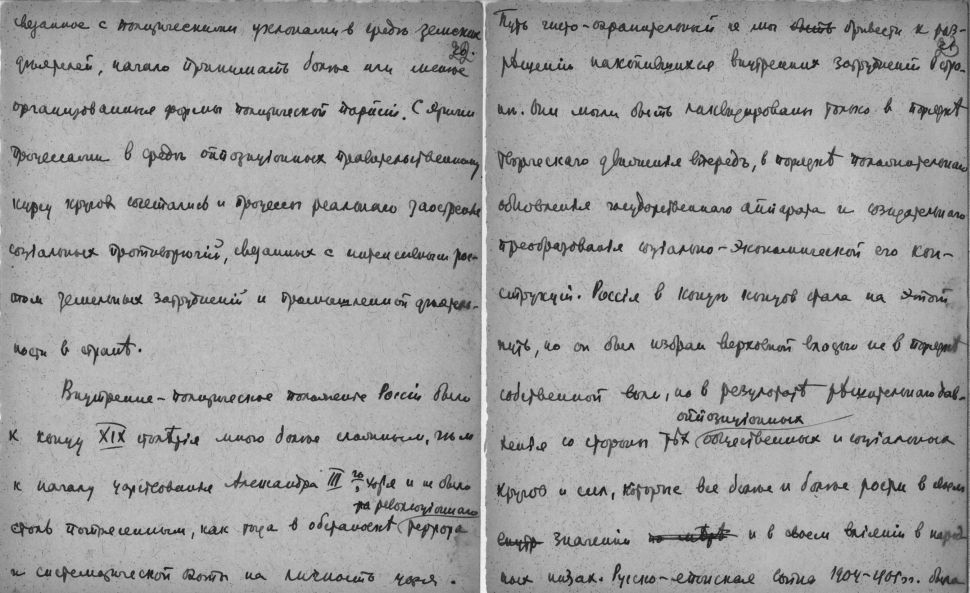 связанное с политическими уклонами в средѣ земских
20.
дѣятелей, начало принимать более или менее
организованные формы политической партіи. С этими
процессами в средѣ оппозиціонных правительственному
курсу кругов сочетались и процессы реального заостренія
соціальных противорѣчій, связанных с интенсивным рос-
том земельных затрудненій и промышленной дѣятель-
ности в странѣ.
Внутренне-политическое положеніе Россіи было
к концу XIX столѣтія много более сложным, чѣм
к началу царствованія Александра III го, хотя и не было
революціоннаго
столь потрясенным, как тогда в обстановкѣ террора
и систематической охоты на личность царя.
Путь чисто-охранительный не мог быть привести к раз-
21
рѣшенію накопившихся внутренних затрудненій стра-
ны. Они могли быть ликвидированы только в порядкѣ
творческаго движенія впередъ, в порядкѣ положительнаго
обновленія государственнаго аппарата и созидательнаго
преобразованія соціально-экономической его кон-
струкціи. Россія в концѣ концов стала на этот
путь, но он был избран верховной властью не в порядкѣ
собственной воли, но в результатѣ рѣшительнаго дав-
оппозиціонных
ленія со стороны тѣх общественных и соціальных
кругов и сил, которые все более и более росли в своем
внутр значеніи по мѣрѣ и в своем вліяніи в народ-
ных низах. Русско-японская война 1904-1905 гг. была